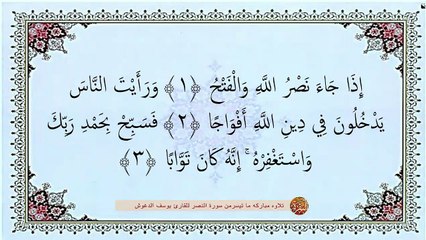 إِذَا جَاءَ نَصْرُ اللَّهِ وَالْفَتْحُ ﴿١﴾ وَرَأَيْتَ النَّاسَ
يَدْخُلُونَ فِي دِينِ اللَّهِ أَفْوَاجًا ﴿٢﴾ فَسَبِّحْ بِحَمْدِ رَبِّكَ
وَاسْتَغْفِرْهُ ۚ إِنَّهُ كَانَ تَوَّابًا ﴿٣﴾
تلاوه مباركه ما تيسرمن سورة النصر للقارئ يوسف الدغوش